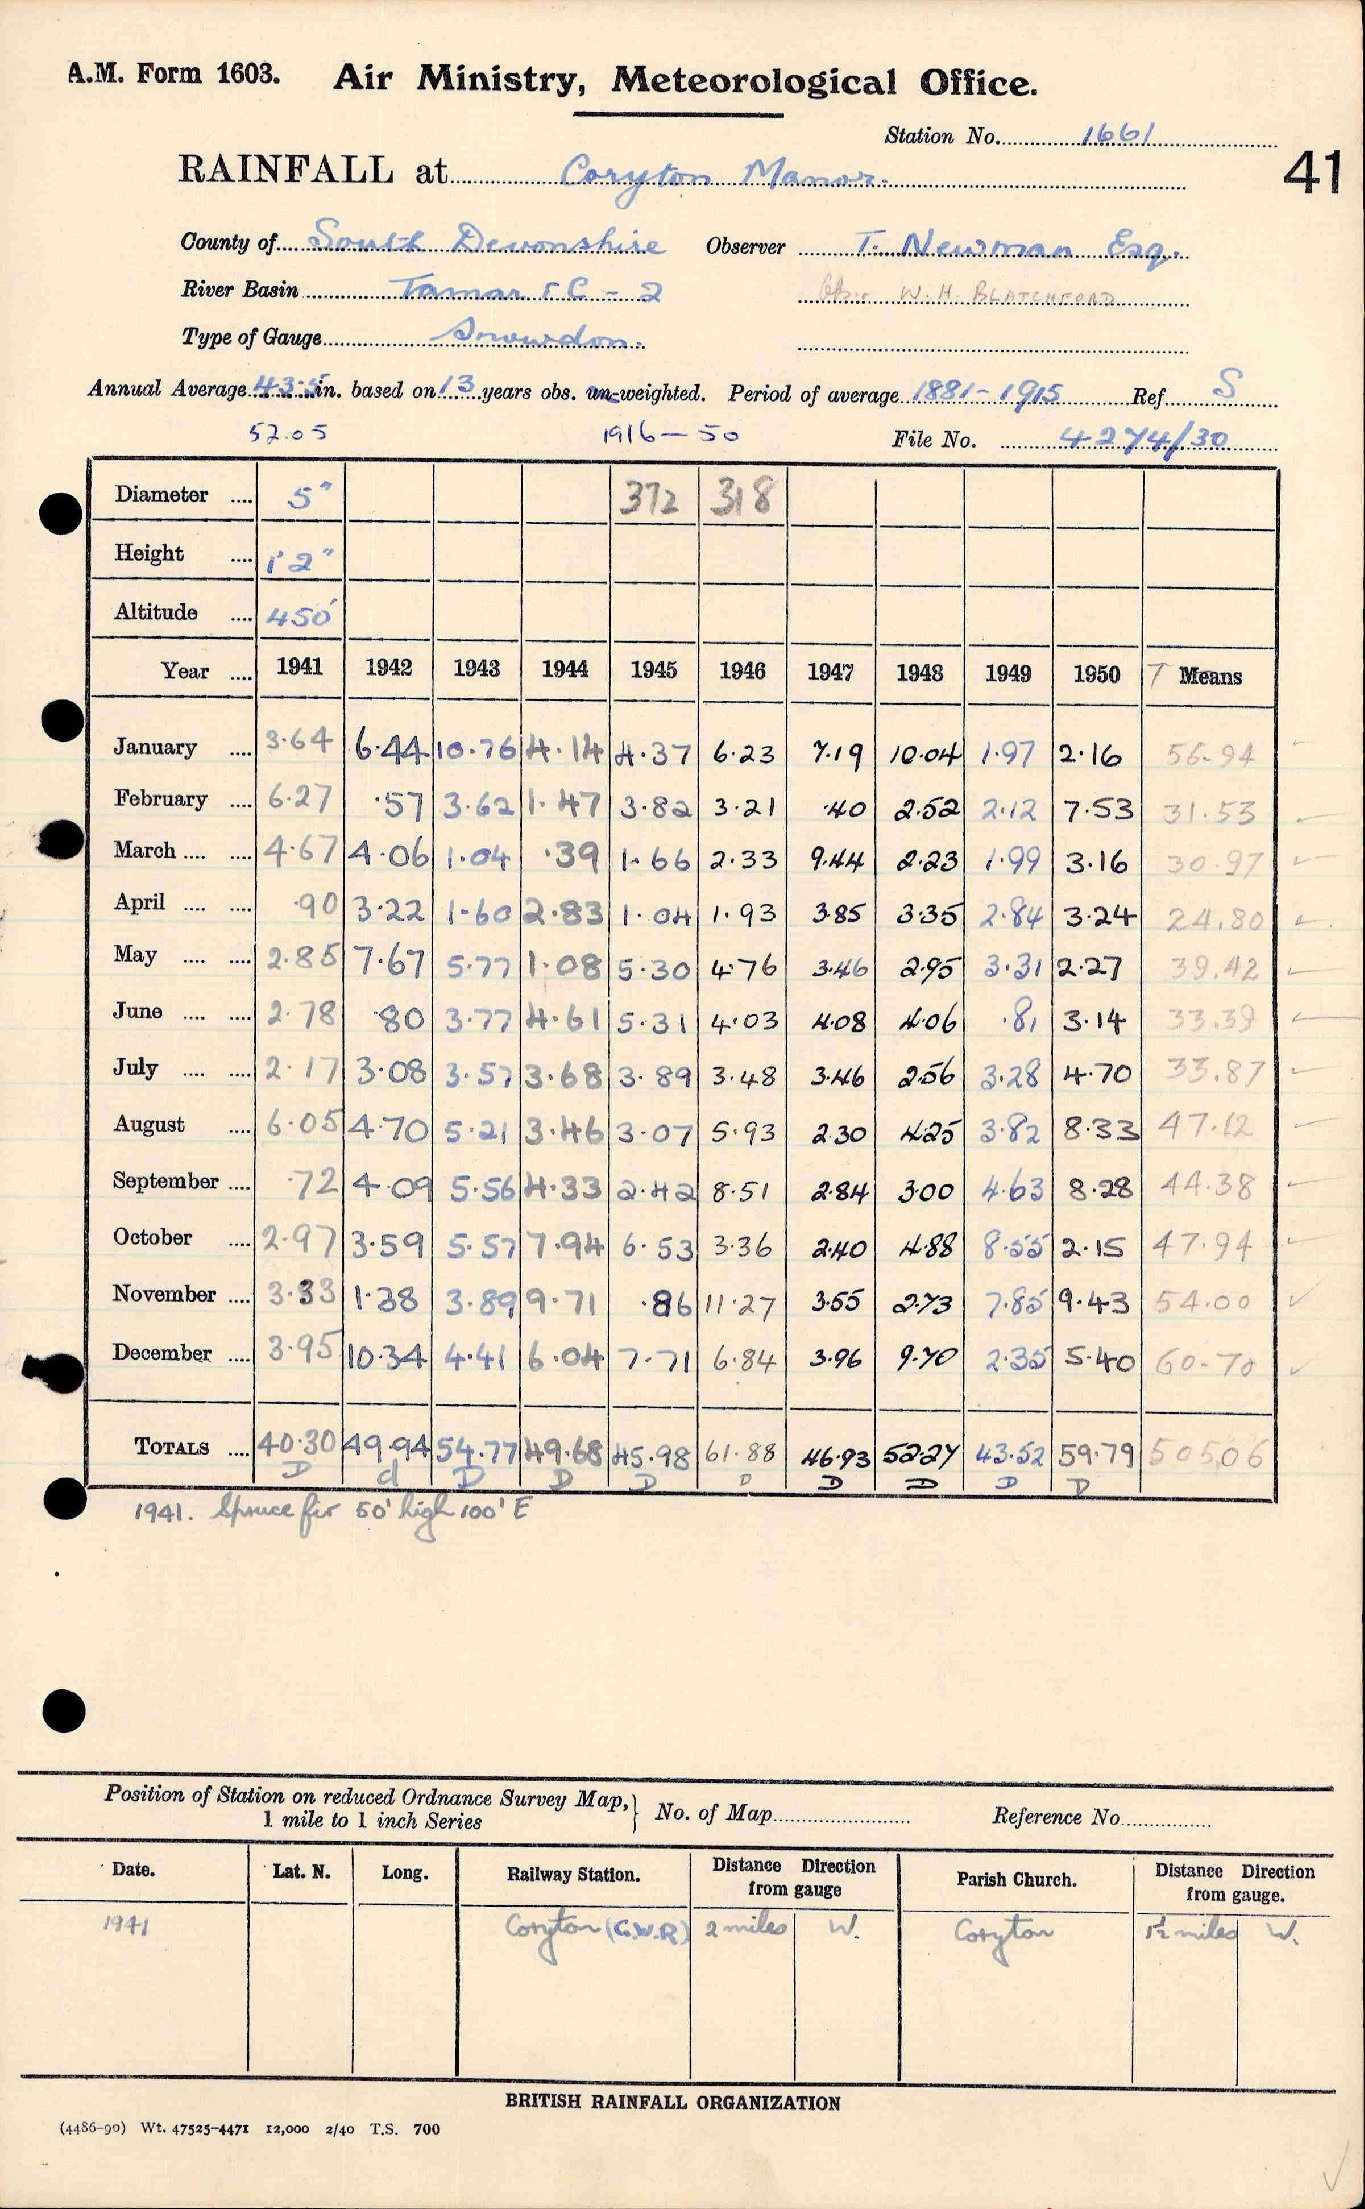 A.M. Form 1603. Air Ministry, Meteorological Office.
Station No. 1661
41
RAINFALL at Coryton Manor.
County of South Devonshire Observer T. Newman Esq.
River Basin Tamar & C - 2 Obs. W.H. BLATCHFORD
Type of Gauge Snowdon.
Annual Average 43.5 in. based on 13 years obs. un-weighted. Period of average 1881-1915 Ref S
52.05 1916-50 File No. 4274/30
Diameter .... 5" 372 318
Height .... 1' 2"
Altitude .... 450'
Year .... 1941 1942 1943 1944 1945 1946 1947 1948 1949 1950 T Means
January .... 3.64 6.44 10.76 4.14 4.37 6.23 7.19 10.04 1.97 2.16 56.94
February .... 6.27 .57 3.62 1.47 3.82 3.21 .40 2.52 2.12 7.53 31.53
March .... .... 4.67 4.06 1.04 .39 1.66 2.33 9.44 2.23 1.99 3.16 30.97
April .... .... .90 3.22 1.60 2.83 1.04 1.93 3.85 3.35 2.84 3.24 24.80
May .... .... 2.85 7.67 5.77 1.08 5.30 4.76 3.46 2.95 3.31 2.27 39.42
June .... .... 2.78 .80 3.77 4.61 5.31 4.03 4.08 4.06 .81 3.14 33.39
July .... .... 2.17 3.08 3.57 3.68 3.89 3.48 3.46 2.56 3.28 4.70 33.87
August .... 6.05 4.70 5.21 3.46 3.07 5.93 2.30 4.25 3.82 8.33 47.12
September .... .72 4.09 5.56 4.33 2.42 8.51 2.84 3.00 4.63 8.28 44.38
October .... 2.97 3.59 5.57 7.94 6.53 3.36 2.40 4.88 8.55 2.15 47.94
November .... 3.33 1.38 3.89 9.71 .86 11.27 3.55 2.73 7.85 9.43 54.00
December .... 3.95 10.34 4.41 6.04 7.71 6.84 3.96 9.70 2.35 5.40 60.70
TOTALS .... 40.30 49.94 54.77 49.68 45.98 61.88 46.93 52.27 43.52 59.79 505.06
D d D D D D D D D D
1941. Spruce fir 50' high 100' E
Position of Station on reduced Ordnance Survey Map, 1 mile to 1 inch Series } No. of Map Reference No
Date. Lat. N. Long. Railway Station. Distance Direction from gauge Parish Church. Distance Direction from gauge.
1941 Coryton (G.W.R) 2 miles W. Coryton 1½ miles W.
BRITISH RAINFALL ORGANIZATION
(4486-90) Wt. 47525-4471 12,000 2/40 T.S. 700